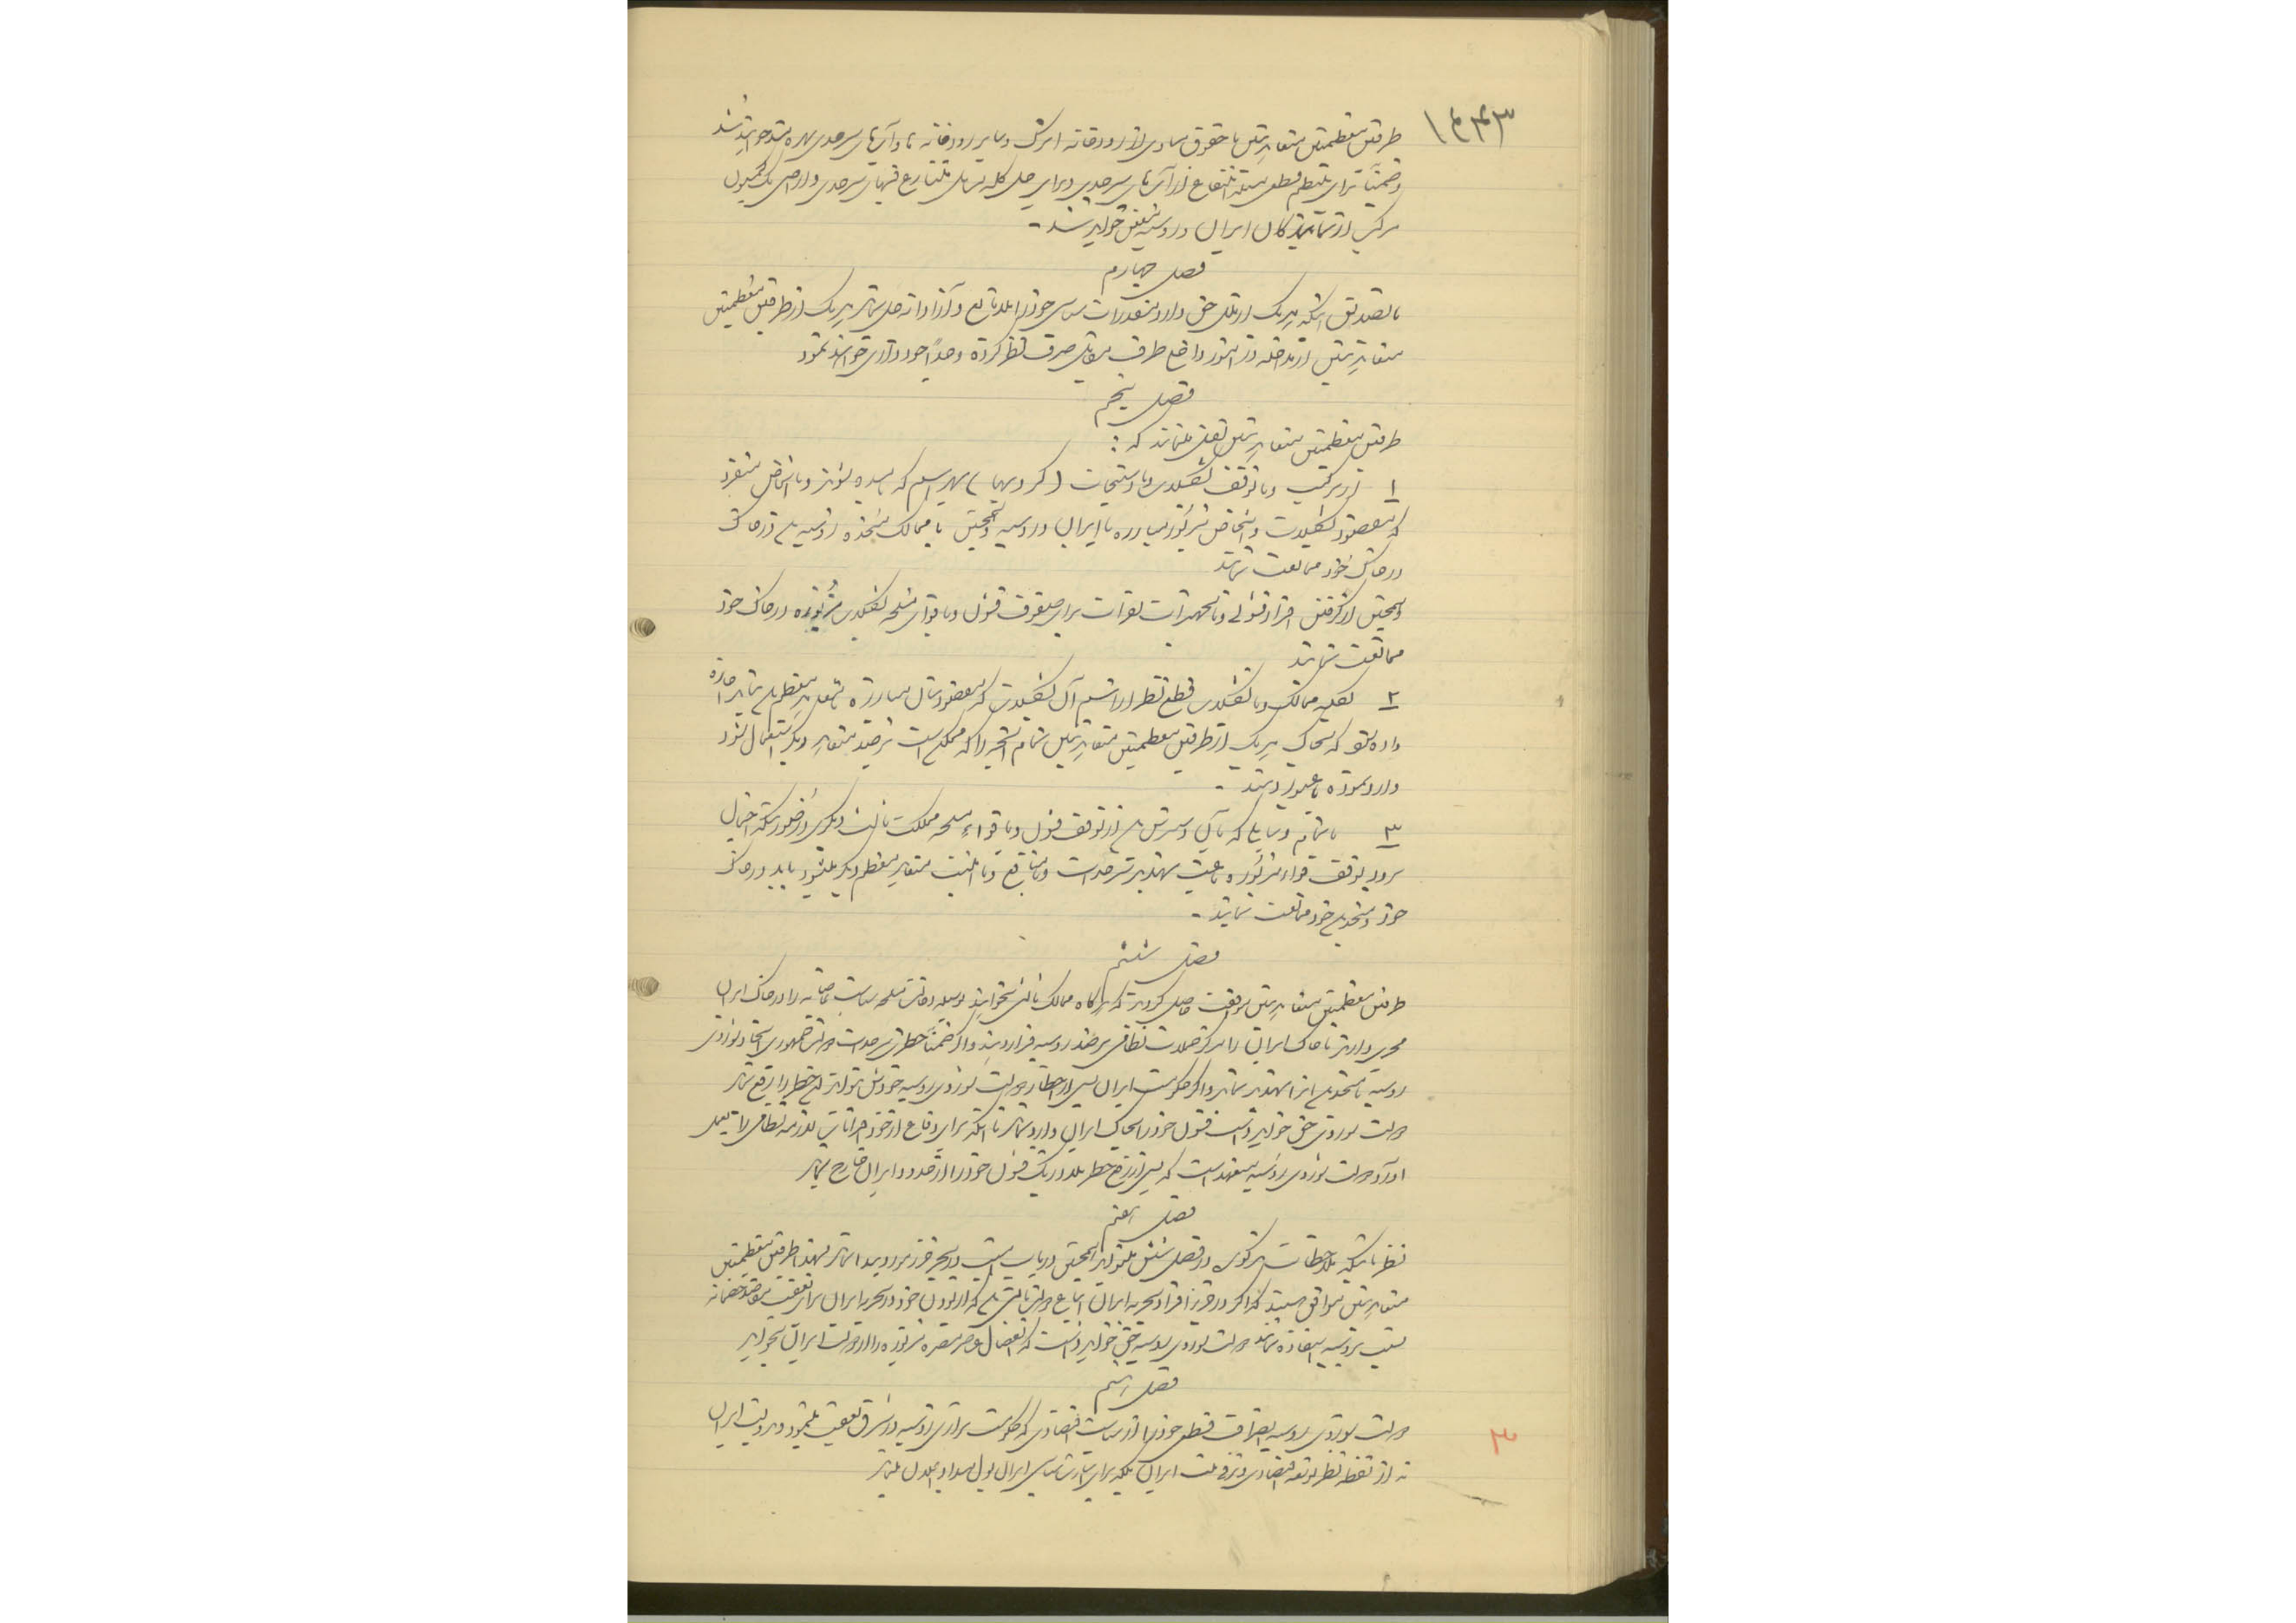 ۱۴۴۳
طرفین معظمتین متعاهدتین با حقوق مساوی از رودخانه اترک و سایر رودخانه ها و آبهای سرحدی بهره مند خواهند شد
و ضمناً برای تنظیم قطعی مسئله انتفاع از آبهای سرحدی و برای حل کلیه مسائل متنازع فیهای سرحدی و اراضی یک کمیسیون
مرکب از نمایندگان ایران و روسیه معین خواهد شد -
فصل چهارم
با تصدیق اینکه هر یک از ملل حق دارد مقدرات سیاسی خود را بلامانع و آزادانه حل نماید هر یک از طرفین معظمتین
متعاهدتین از مداخله در امور داخلی طرف مقابل صرف نظر کرده و جداً خودداری خواهد نمود
فصل پنجم
طرفین معظمتین متعاهدتین تقبل مینمایند که :
۱ از ترکیب و یا توقف تشکیلات و یا دستجات ( گروپها ) بهر اسم که نامیده شوند و یا اشخاص منفرد
که مقصود تشکیلات و اشخاص مزبور مبارزه با ایران و روسیه و همچنین با ممالک متحده روسیه باشد در خاک
در خاک خود ممانعت نمایند
و همچنین از گرفتن افراد قشونی و یا تجهیزات نفرات برای صفوف قشون و یا قوای مسلحه تشکیلات مزبوره در خاک خود
ممانعت نمایند
۲ بکلیه ممالک و یا تشکیلات قطع نظر از اسم آن تشکیلات که مقصودشان مبارزه با متعاهد معظم باشد نباید اجازه
داده شود که بخاک هر یک از طرفین معظمتین متعاهدتین تمام آنچه را که ممکن است بر ضد متعاهد دیگر استعمال شود
وارد نموده یا عبور دهند -
۳ با تمام وسایلی که بآن دسترس باشد از توقف قشون و یا قوای مسلحه مملکت ثالث دیگری در صورتیکه احتمال
برود توقف قوای مزبوره باعث تهدید سرحدات و یا منافع و یا امنیت متعاهد معظم دیگر میشود باید در خاک
خود و متحدین خود ممانعت نمایند -
فصل ششم
طرفین معظمتین متعاهدتین موافقت حاصل کردند که هر گاه ممالک ثالثی بخواهند بوسیله دخالت مسلحه سیاست غاصبانه را در خاک ایران
مجری دارند یا خاک ایران را مرکز حملات نظامی بر ضد روسیه قرار دهند و اگر ضمناً خطری سرحدات دولت جمهوری اتحادی شوروی
روسیه یا متحدین آنرا تهدید نماید و اگر حکومت ایران پس از اخطار دولت شوروی روسیه خودش نتواند این خطر را رفع نماید
دولت شوروی حق خواهد داشت قشون خود را بخاک ایران وارد نماید تا اینکه برای دفاع از خود اقدامات لازمه نظامی را بعمل
آورد دولت شوروی روسیه متعهد است که پس از رفع خطر بلادرنگ قشون خود را از حدود ایران خارج نماید
فصل هفتم
نظر باینکه ملاحظات مذکوره در فصل ششم میتواند همچنین در باب امنیت در بحر خزر مورد پیدا نماید لهذا طرفین معظمتین
متعاهدتین موافق هستند که اگر در جزء افراد بحریه ایران اتباع دولت ثالثی باشند که از بودن خود در بحریه ایران برای تعقیب مقاصد خصمانه
نسبت بروسیه استفاده نمایند دولت شوروی روسیه حق خواهد داشت که انفصال عناصر مضره مزبوره را از دولت ایران بخواهد
فصل هشتم
دولت شوروی روسیه انصراف قطعی خود را از سیاست اقتصادی که حکومت تزاری روسیه در شرق تعقیب مینمود و بدولت ایران
نه از نقطه نظر توسعه اقتصادی و ترقی ملت ایران بلکه برای اسارت سیاسی ایران پول میداد اعلان مینماید
۳